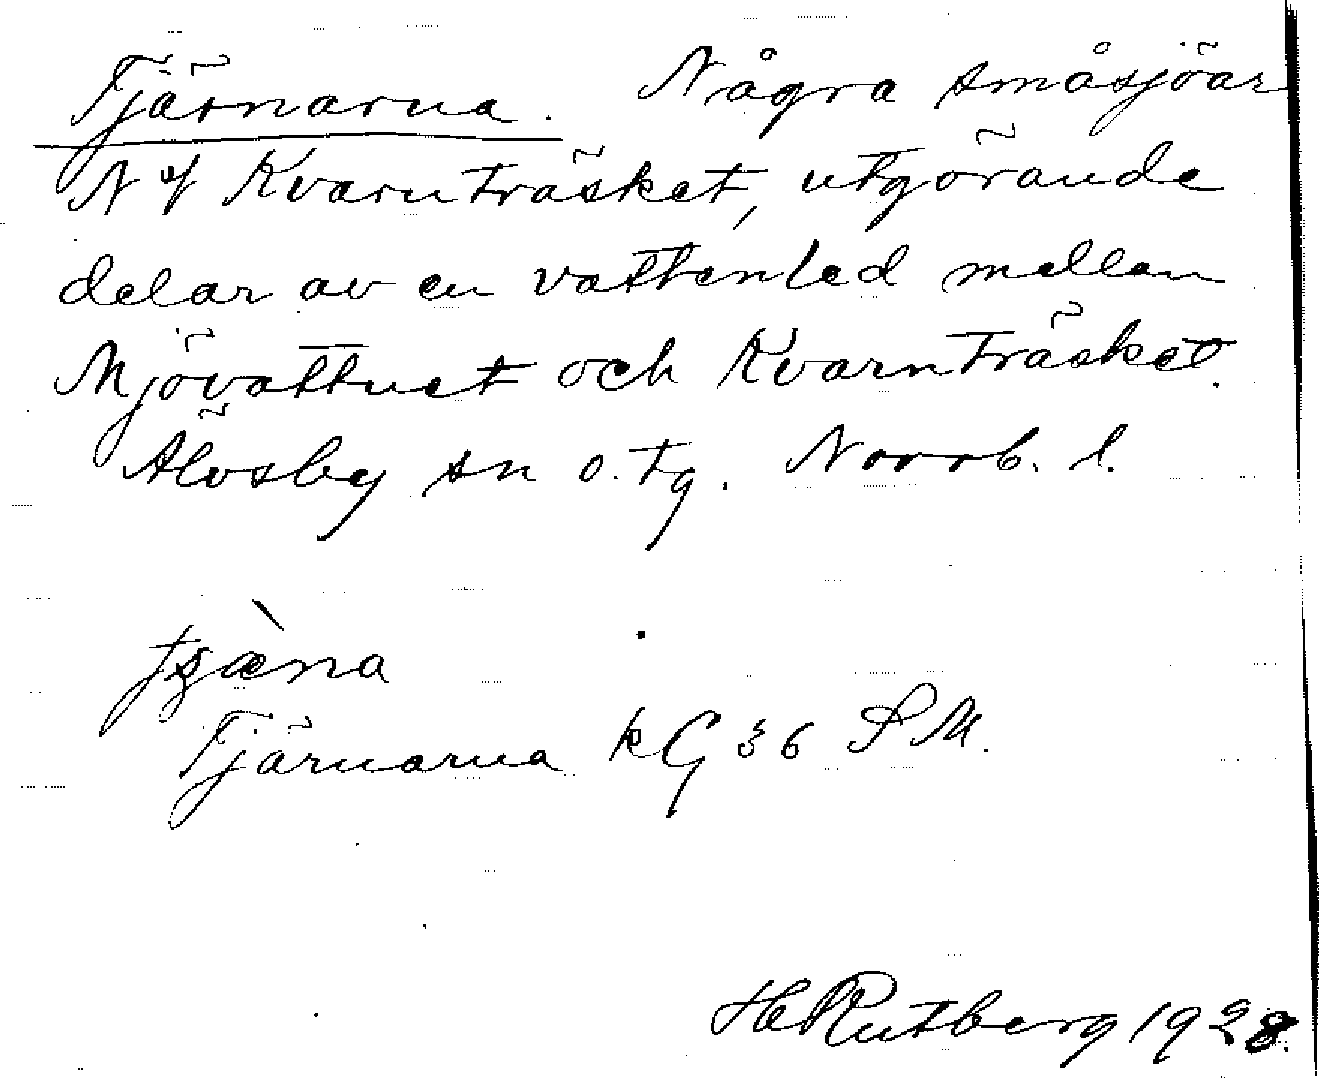 Tjärnarna. Några småsjöar
N of Kvarnträsket, utgörande
delar av en vattenled mellan
Mjövattnet och Kvarnträsket.
Älvsby sn o. tg. Norrb. l.
Tjärnarna kG 36 SM.
H Rutberg 1928.